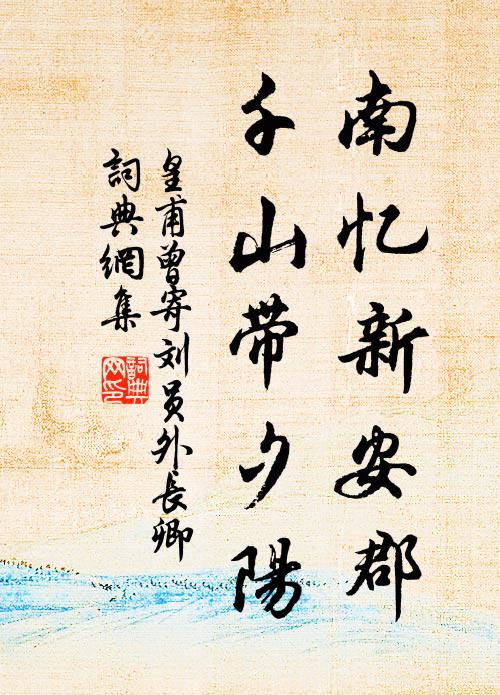 南忆新安郡
千山带夕陽
皇甫曾寄刘员外長卿
詞典網集
詞典
网印